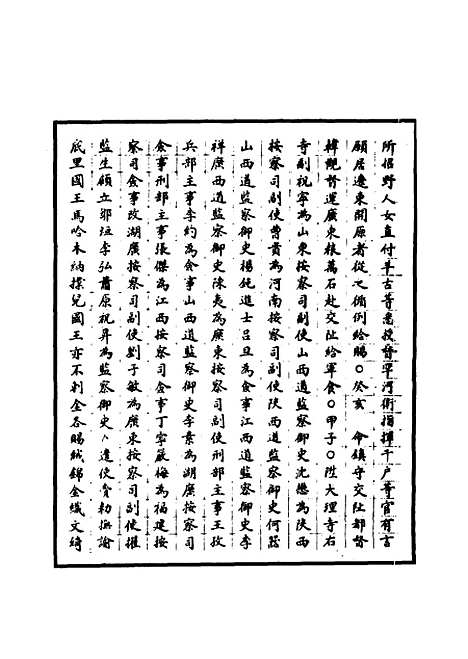 所侶野人女直付羊古等悉授督罕河衛指揮千戶等官有言
願居遼東開原者從之循例給賜○癸亥　命鎮守交阯都督
韓觀督運廣東粮萬石赴交阯給軍食○甲子○陞大理寺右
寺副祝寧為山東按察司副使山西道監察御史沈懋為陝西
按察司副使曹貴為河南按察司副使陝西道監察御史何
山西道監察御史楊純進士呂旦為僉事江西道監察御史李
祥廣西道監察御史陳夷為廣東按察司副使刑部主事王孜
兵部主事李約為僉事山西道監察御史李素為湖廣按察司
僉事刑部主事張傑為江西按察司僉事丁寧嚴梅為福建按
察司僉事改湖廣按察司副使劉子敏為廣東按察司副使擢
監生頓立鄒垣李弘蕭原祝昇為監察御史○遣使齎勑撫諭
底里國王馬哈木納撲兒國王亦不剌金各賜絨錦金織文綺